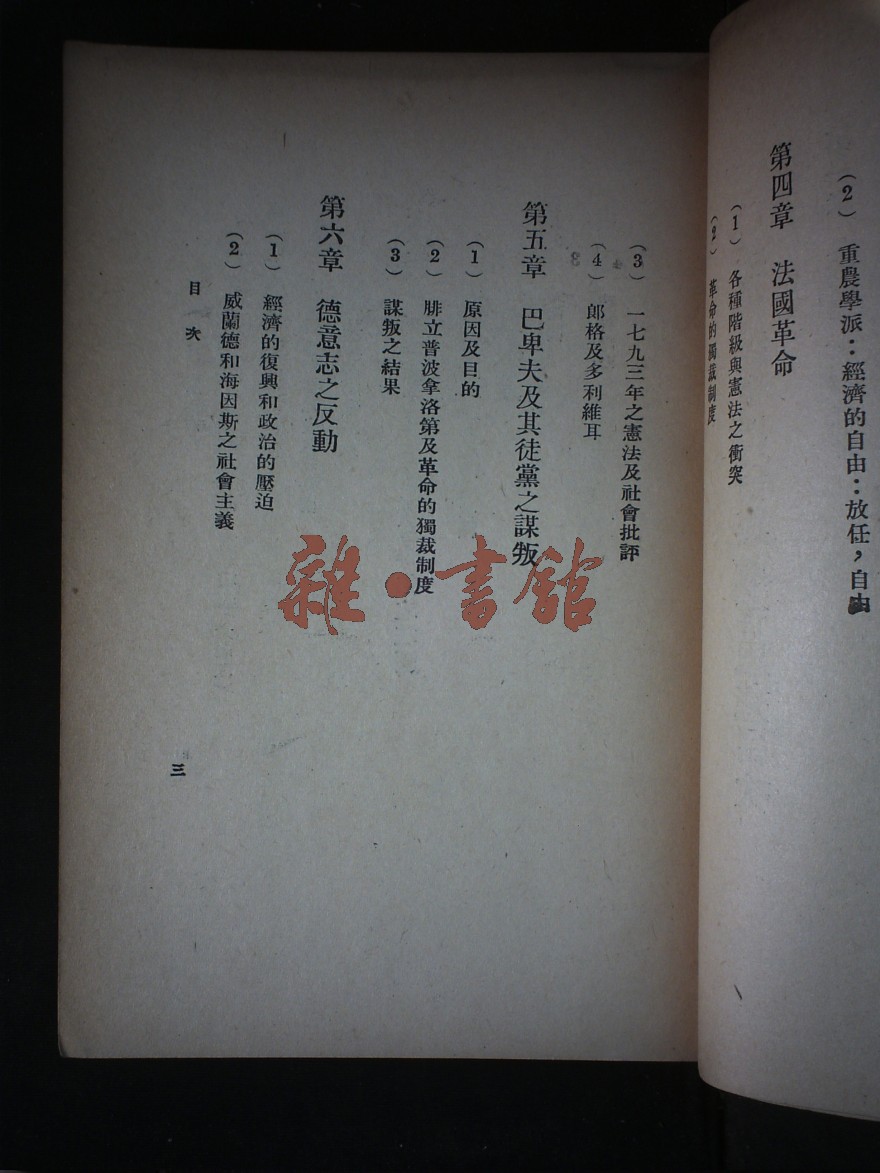 (2) 重農學派：經濟的自由：放任，自由
第四章 法國革命
(1) 各種階級與憲法之衝突
(2) 革命的獨裁制度
(3) 一七九三年之憲法及社會批評
(4) 郎格及多利維耳
第五章 巴卑夫及其徒黨之謀叛
(1) 原因及目的
(2) 腓立普波拿洛第及革命的獨裁制度
(3) 謀叛之結果
第六章 德意志之反動
(1) 經濟的復興和政治的壓迫
(2) 威蘭德和海因斯之社會主義
目次
三
雜·書館